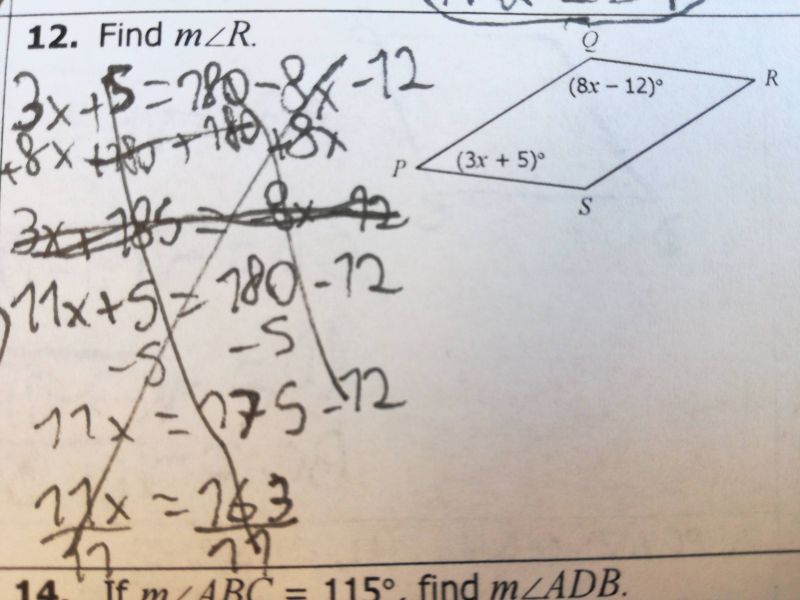 12. Find m∠R.
3x+5=180-8x-12
+8x +180+180 +8x
3x+185=8x-12
11x+5=180-12
-5 -5
11x=175-12
11x=163
11 11
Q
R
P
S
(8x – 12)°
(3x + 5)°
14. If m∠ABC = 115°, find m∠ADB.